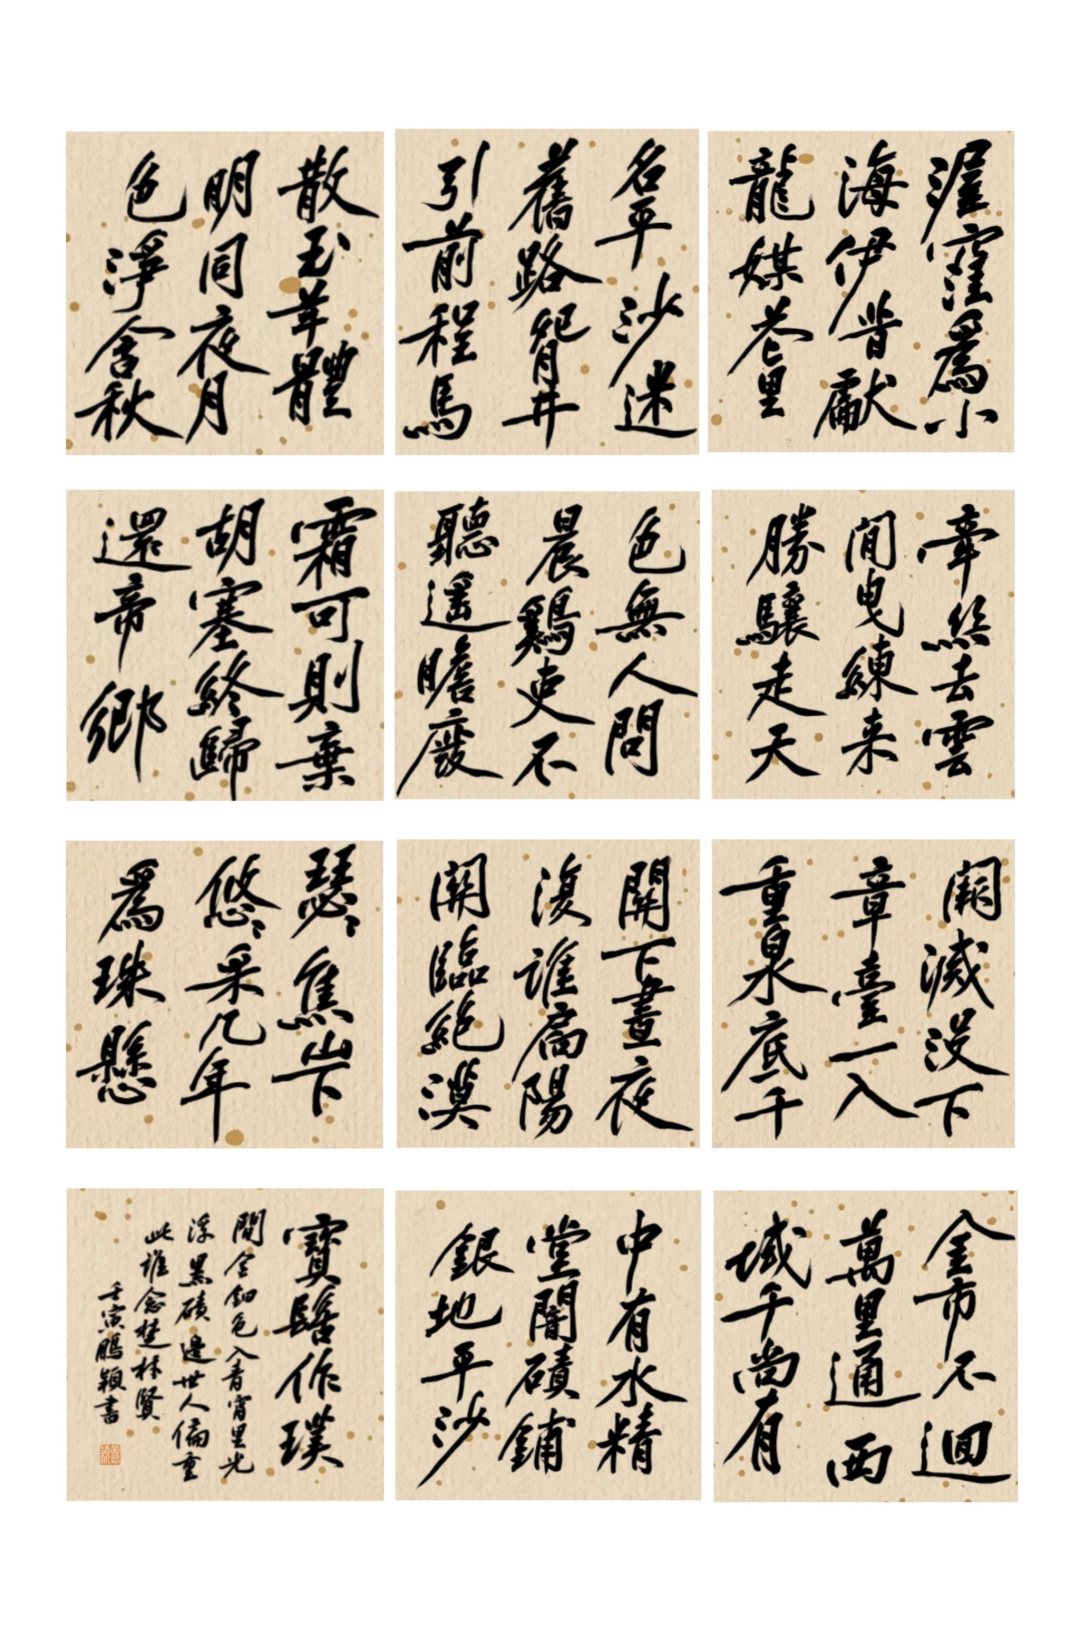 渥窪爲小
海伊昔獻
龍媒花里
牽絲去雲
間曳練来
勝驤走天
闕滅没下
章臺一入
重泉底千
金市不迴
萬里通西
域千尚有
名平沙迷
舊路眢井
引前程馬
色無人問
晨鷄吏不
聽遥瞻廢
關下晝夜
復誰扃陽
關臨絕漠
中有水精
堂闇磧鋪
銀地平沙
散玉華體
明同夜月
色淨含秋
霜可則棄
胡塞終歸
還帝鄉
瑟々焦山下
悠々采几年
爲珠懸
寶髻作璞
間金鈿色入青霄里光
浮黑磧邊世人偏重
此誰念楚林賢
壬寅鵬穎書